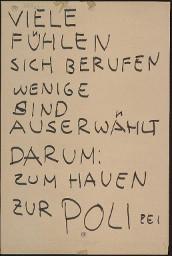 VIELE
FÜHLEN
SICH BERUFEN
WENIGE
SIND
AUSERWÄHLT
DARUM:
ZUM HAUEN
ZUR POLIZEI